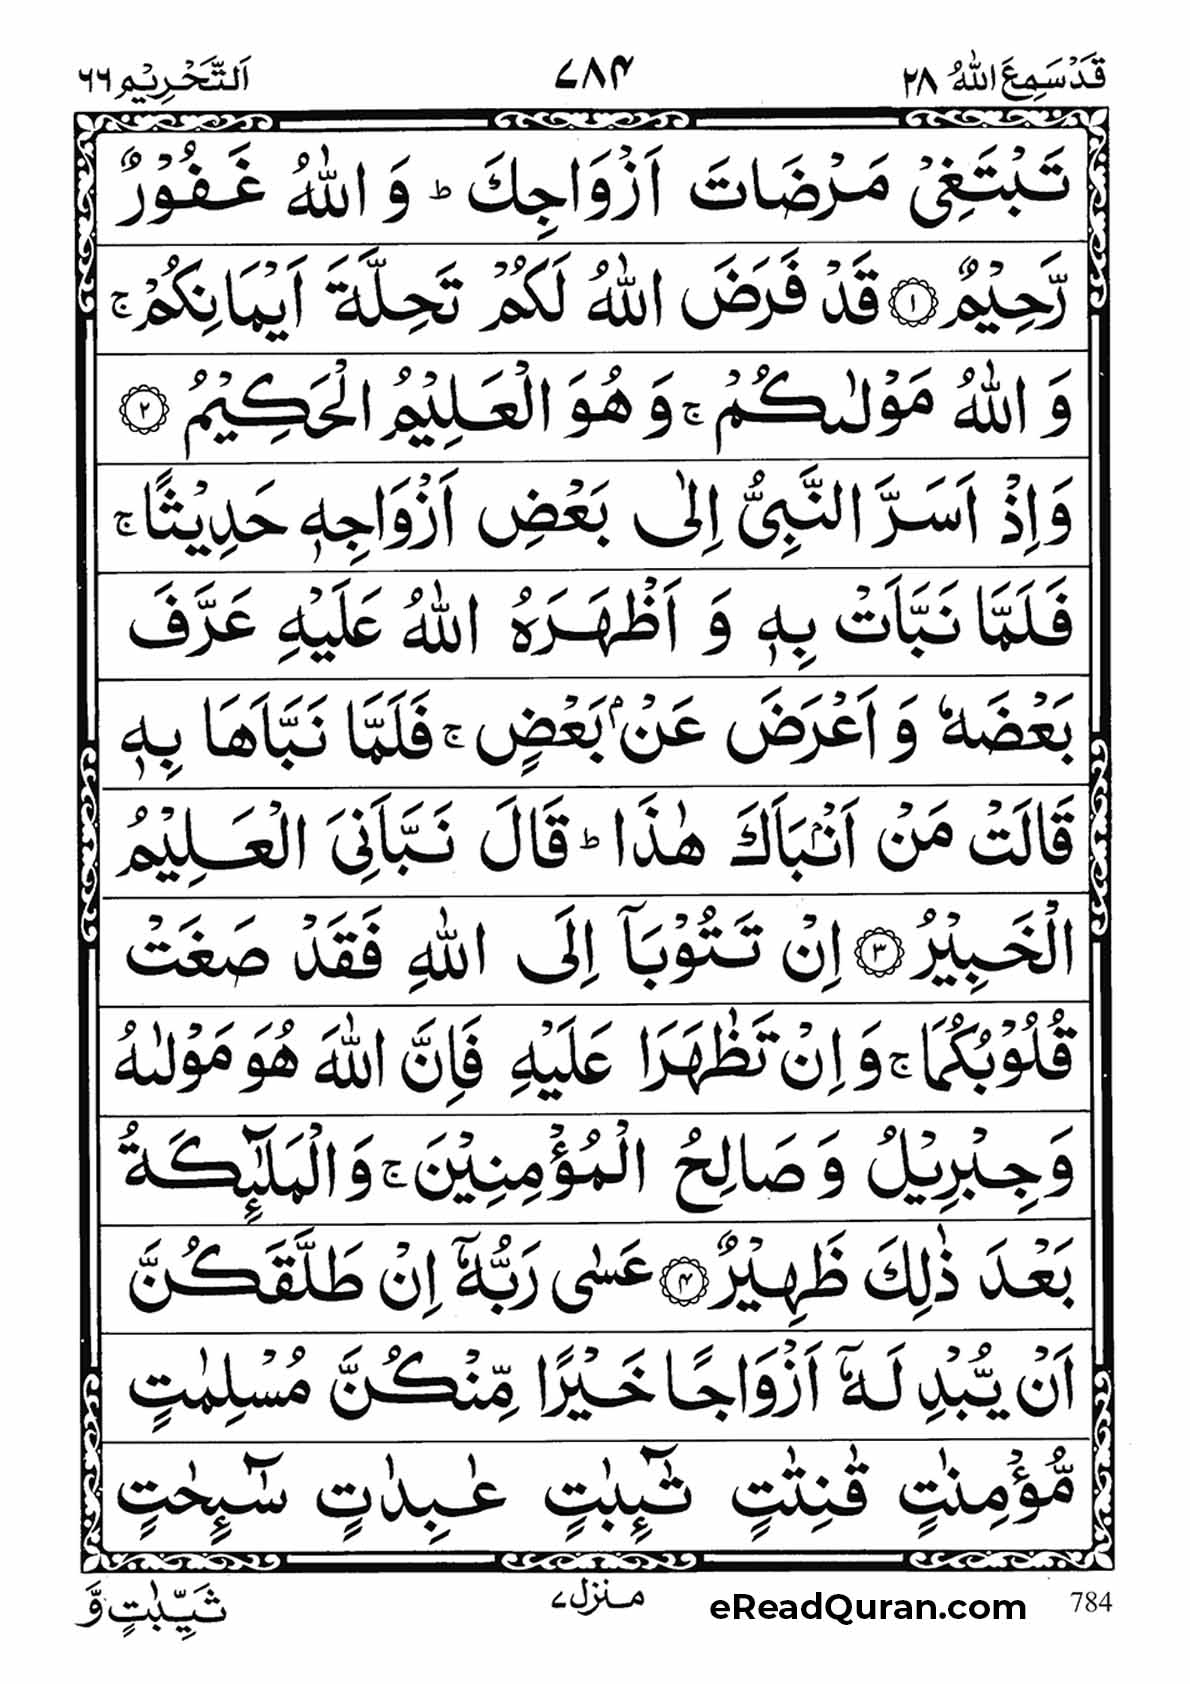 قَدْ سَمِعَ اللّٰهُ ٢٨ ٧٨۴ اَلتَّحْرِيْم ٦٦
تَبْتَغِىْ مَرْضَاتَ اَزْوَاجِكَ ؕ وَ اللّٰهُ غَفُوْرٌ
رَّحِيْمٌ ۝١ قَدْ فَرَضَ اللّٰهُ لَكُمْ تَحِلَّةَ اَيْمَانِكُمْ ۚ
وَ اللّٰهُ مَوْلٰىكُمْ ۚ وَ هُوَ الْعَلِيْمُ الْحَكِيْمُ ۝٢
وَاِذْ اَسَرَّ النَّبِىُّ اِلٰى بَعْضِ اَزْوَاجِهٖ حَدِيْثًا ۚ
فَلَمَّا نَبَّاَتْ بِهٖ وَ اَظْهَرَهُ اللّٰهُ عَلَيْهِ عَرَّفَ
بَعْضَهٗ وَ اَعْرَضَ عَنْۢ بَعْضٍ ۚ فَلَمَّا نَبَّاَهَا بِهٖ
قَالَتْ مَنْ اَنْۢبَاَكَ هٰذَا ؕ قَالَ نَبَّاَنِىَ الْعَلِيْمُ
الْخَبِيْرُ ۝٣ اِنْ تَتُوْبَاۤ اِلَى اللّٰهِ فَقَدْ صَغَتْ
قُلُوْبُكُمَا ۚ وَ اِنْ تَظٰهَرَا عَلَيْهِ فَاِنَّ اللّٰهَ هُوَ مَوْلٰىهُ
وَ جِبْرِيْلُ وَ صَالِحُ الْمُؤْمِنِيْنَ ۚ وَ الْمَلٰٓئِكَةُ
بَعْدَ ذٰلِكَ ظَهِيْرٌ ۝۴ عَسٰى رَبُّهٗۤ اِنْ طَلَّقَكُنَّ
اَنْ يُّبْدِلَهٗۤ اَزْوَاجًا خَيْرًا مِّنْكُنَّ مُسْلِمٰتٍ
مُّؤْمِنٰتٍ قٰنِتٰتٍ تٰٓئِبٰتٍ عٰبِدٰتٍ سٰٓئِحٰتٍ
ثَيِّبٰتٍ وَّ منزل ٧ eReadQuran.com 784